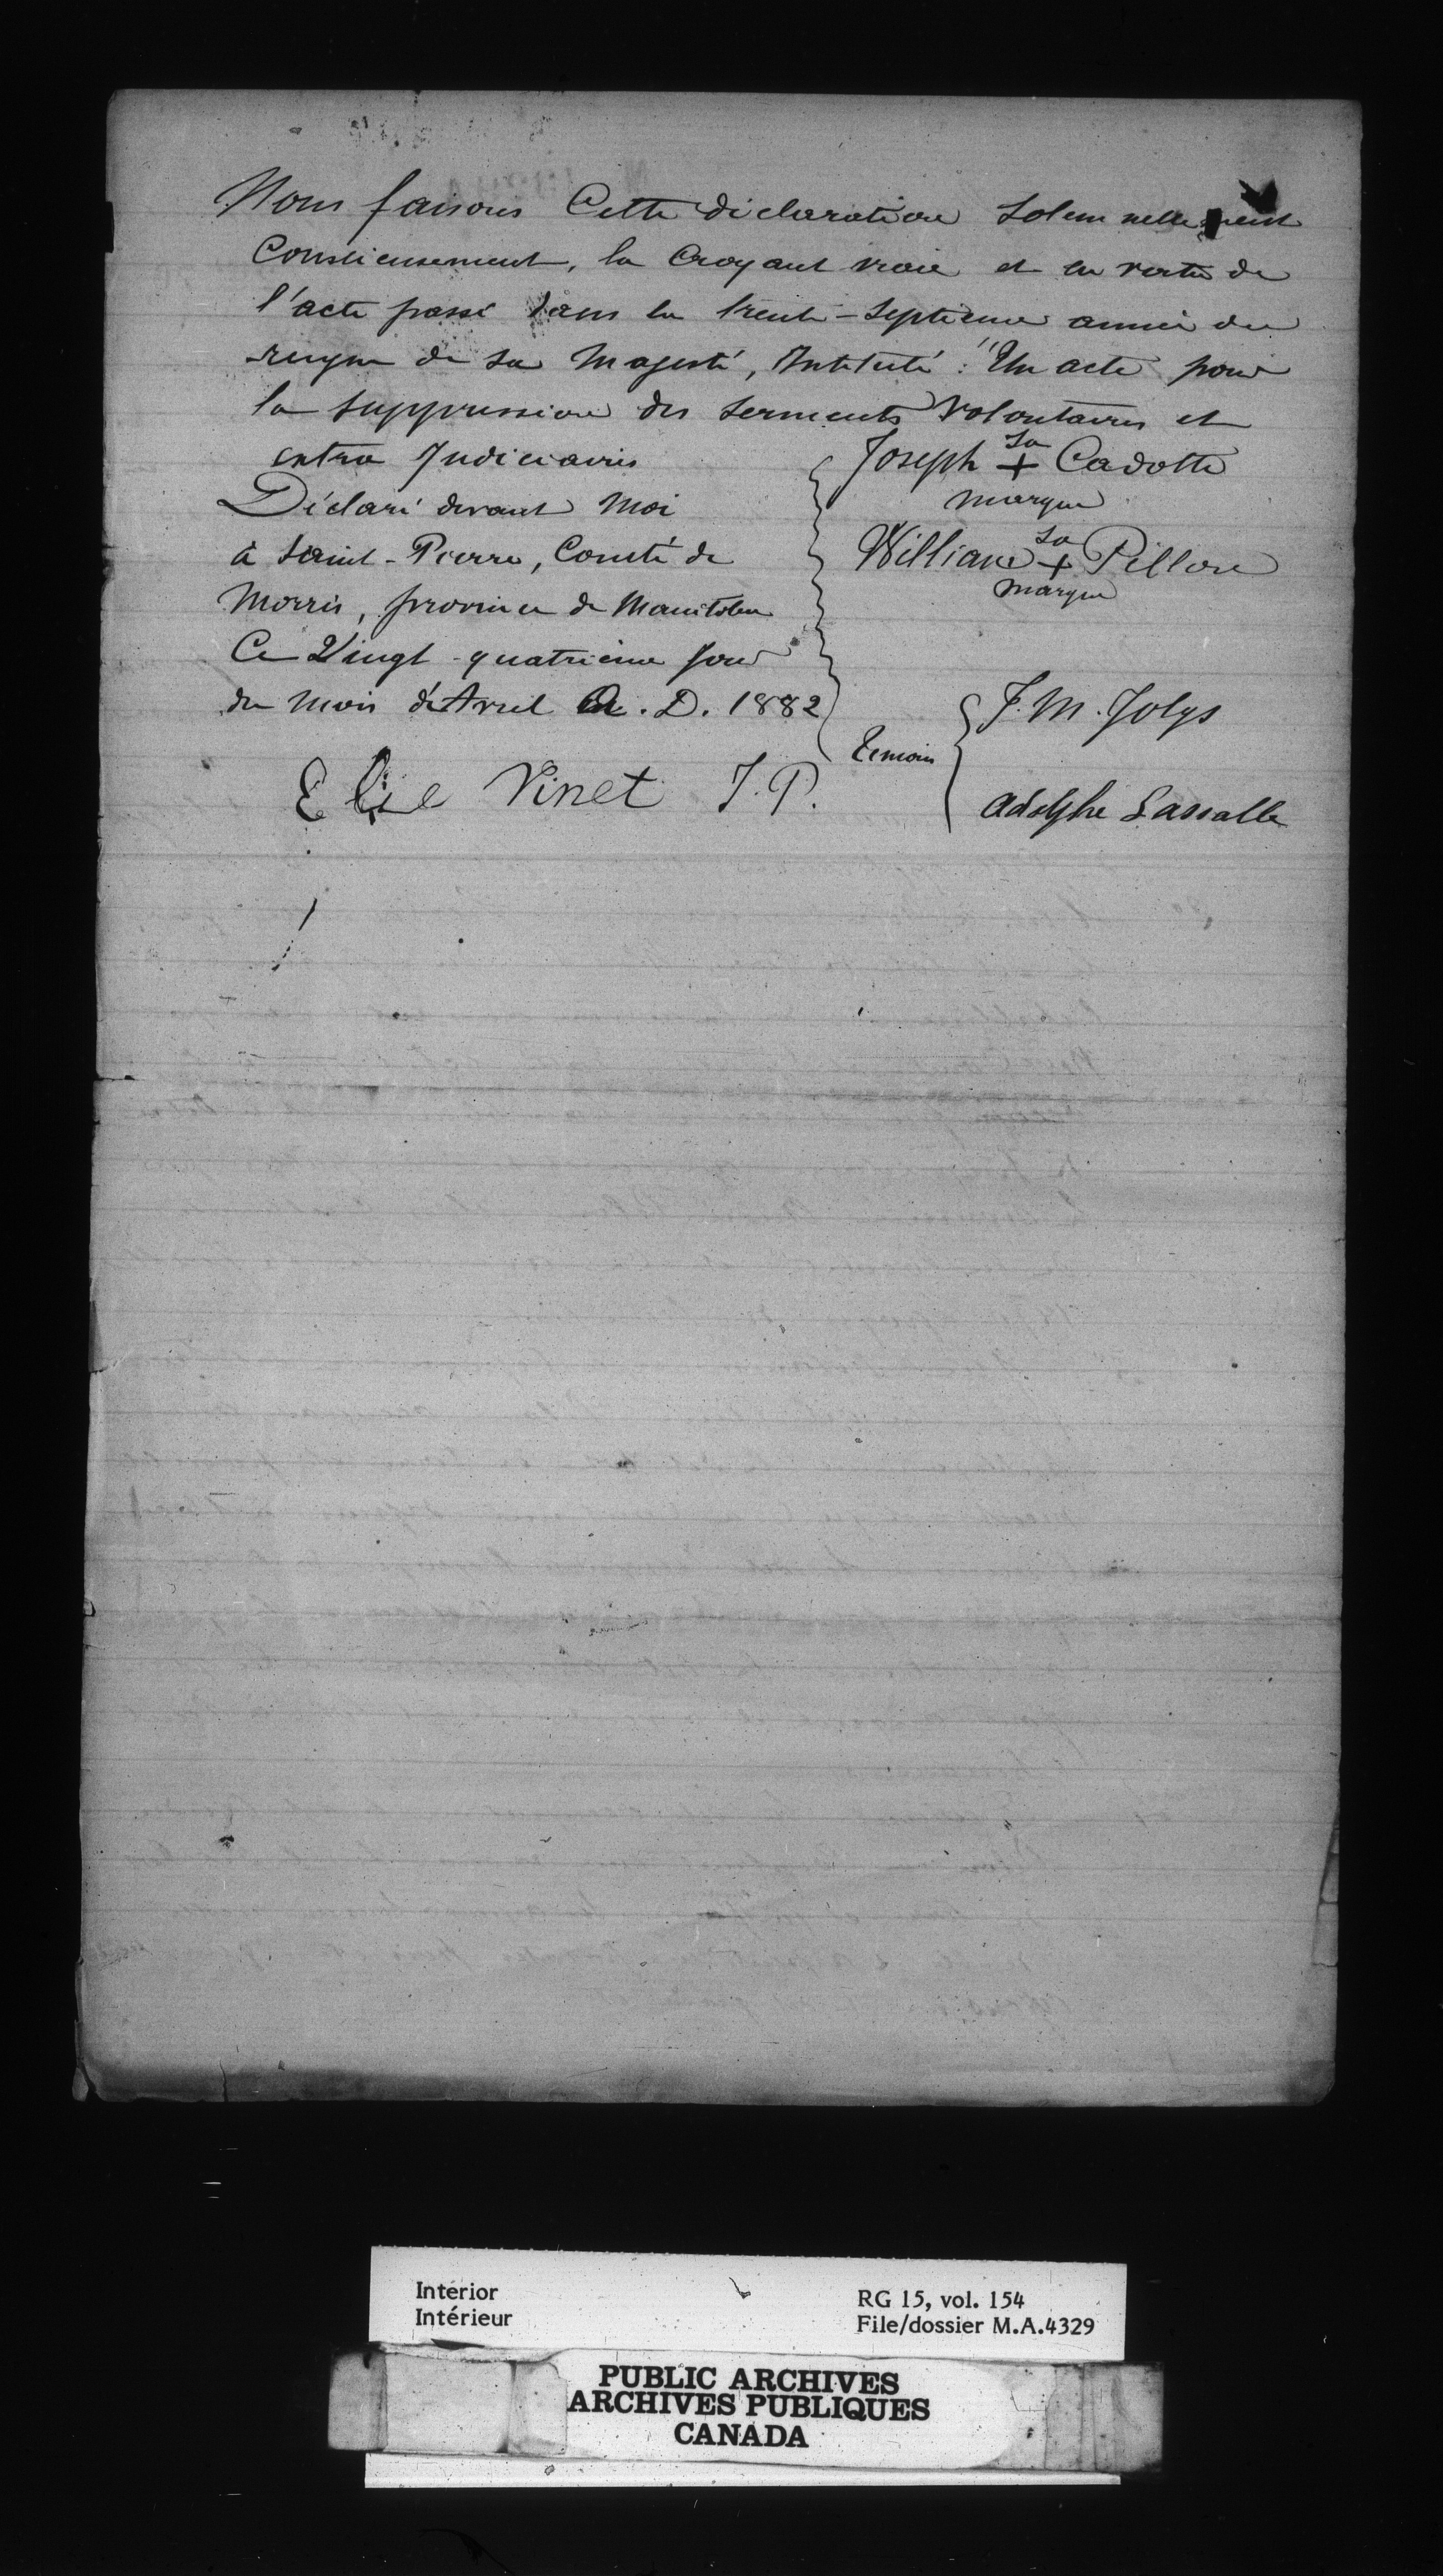 Nous faisons Cette déclaration Solemnellement
Consciensement, la Croyant vraie et en vertu de
l'acte passé dans la trente-septième année du
reigne de sa Majesté, Intitulé : "Un acte pour
la suppression des serments Volontaires et
extra Judiciaires
Déclaré devant Moi
à Saint-Pierre, Comté de
Morris, province de Manitoba
Ce Vingt-quatrième jour
du mois d'Avril A. D. 1882
Elie Vinet J. P.
Joseph sa + Cadotte
marque
William sa + Pillon
marque
Temoins
J. M. Jolys
Adolphe Lassalle
Interior
Intérieur
RG 15, vol. 154
File/dossier M.A.4329
PUBLIC ARCHIVES
ARCHIVES PUBLIQUES
CANADA